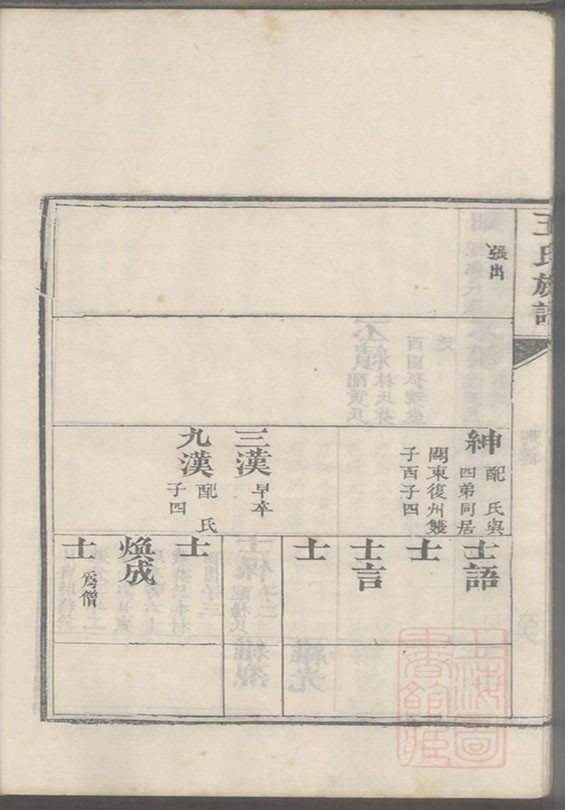 王氏族譜
張出
紳
配 氏與
四弟同居
關東復州雙
子酉子四
三漢
早卒
九漢
配 氏
子四
士語
士
士言
士
士
煥成
士
爲僧
上海圖書館藏